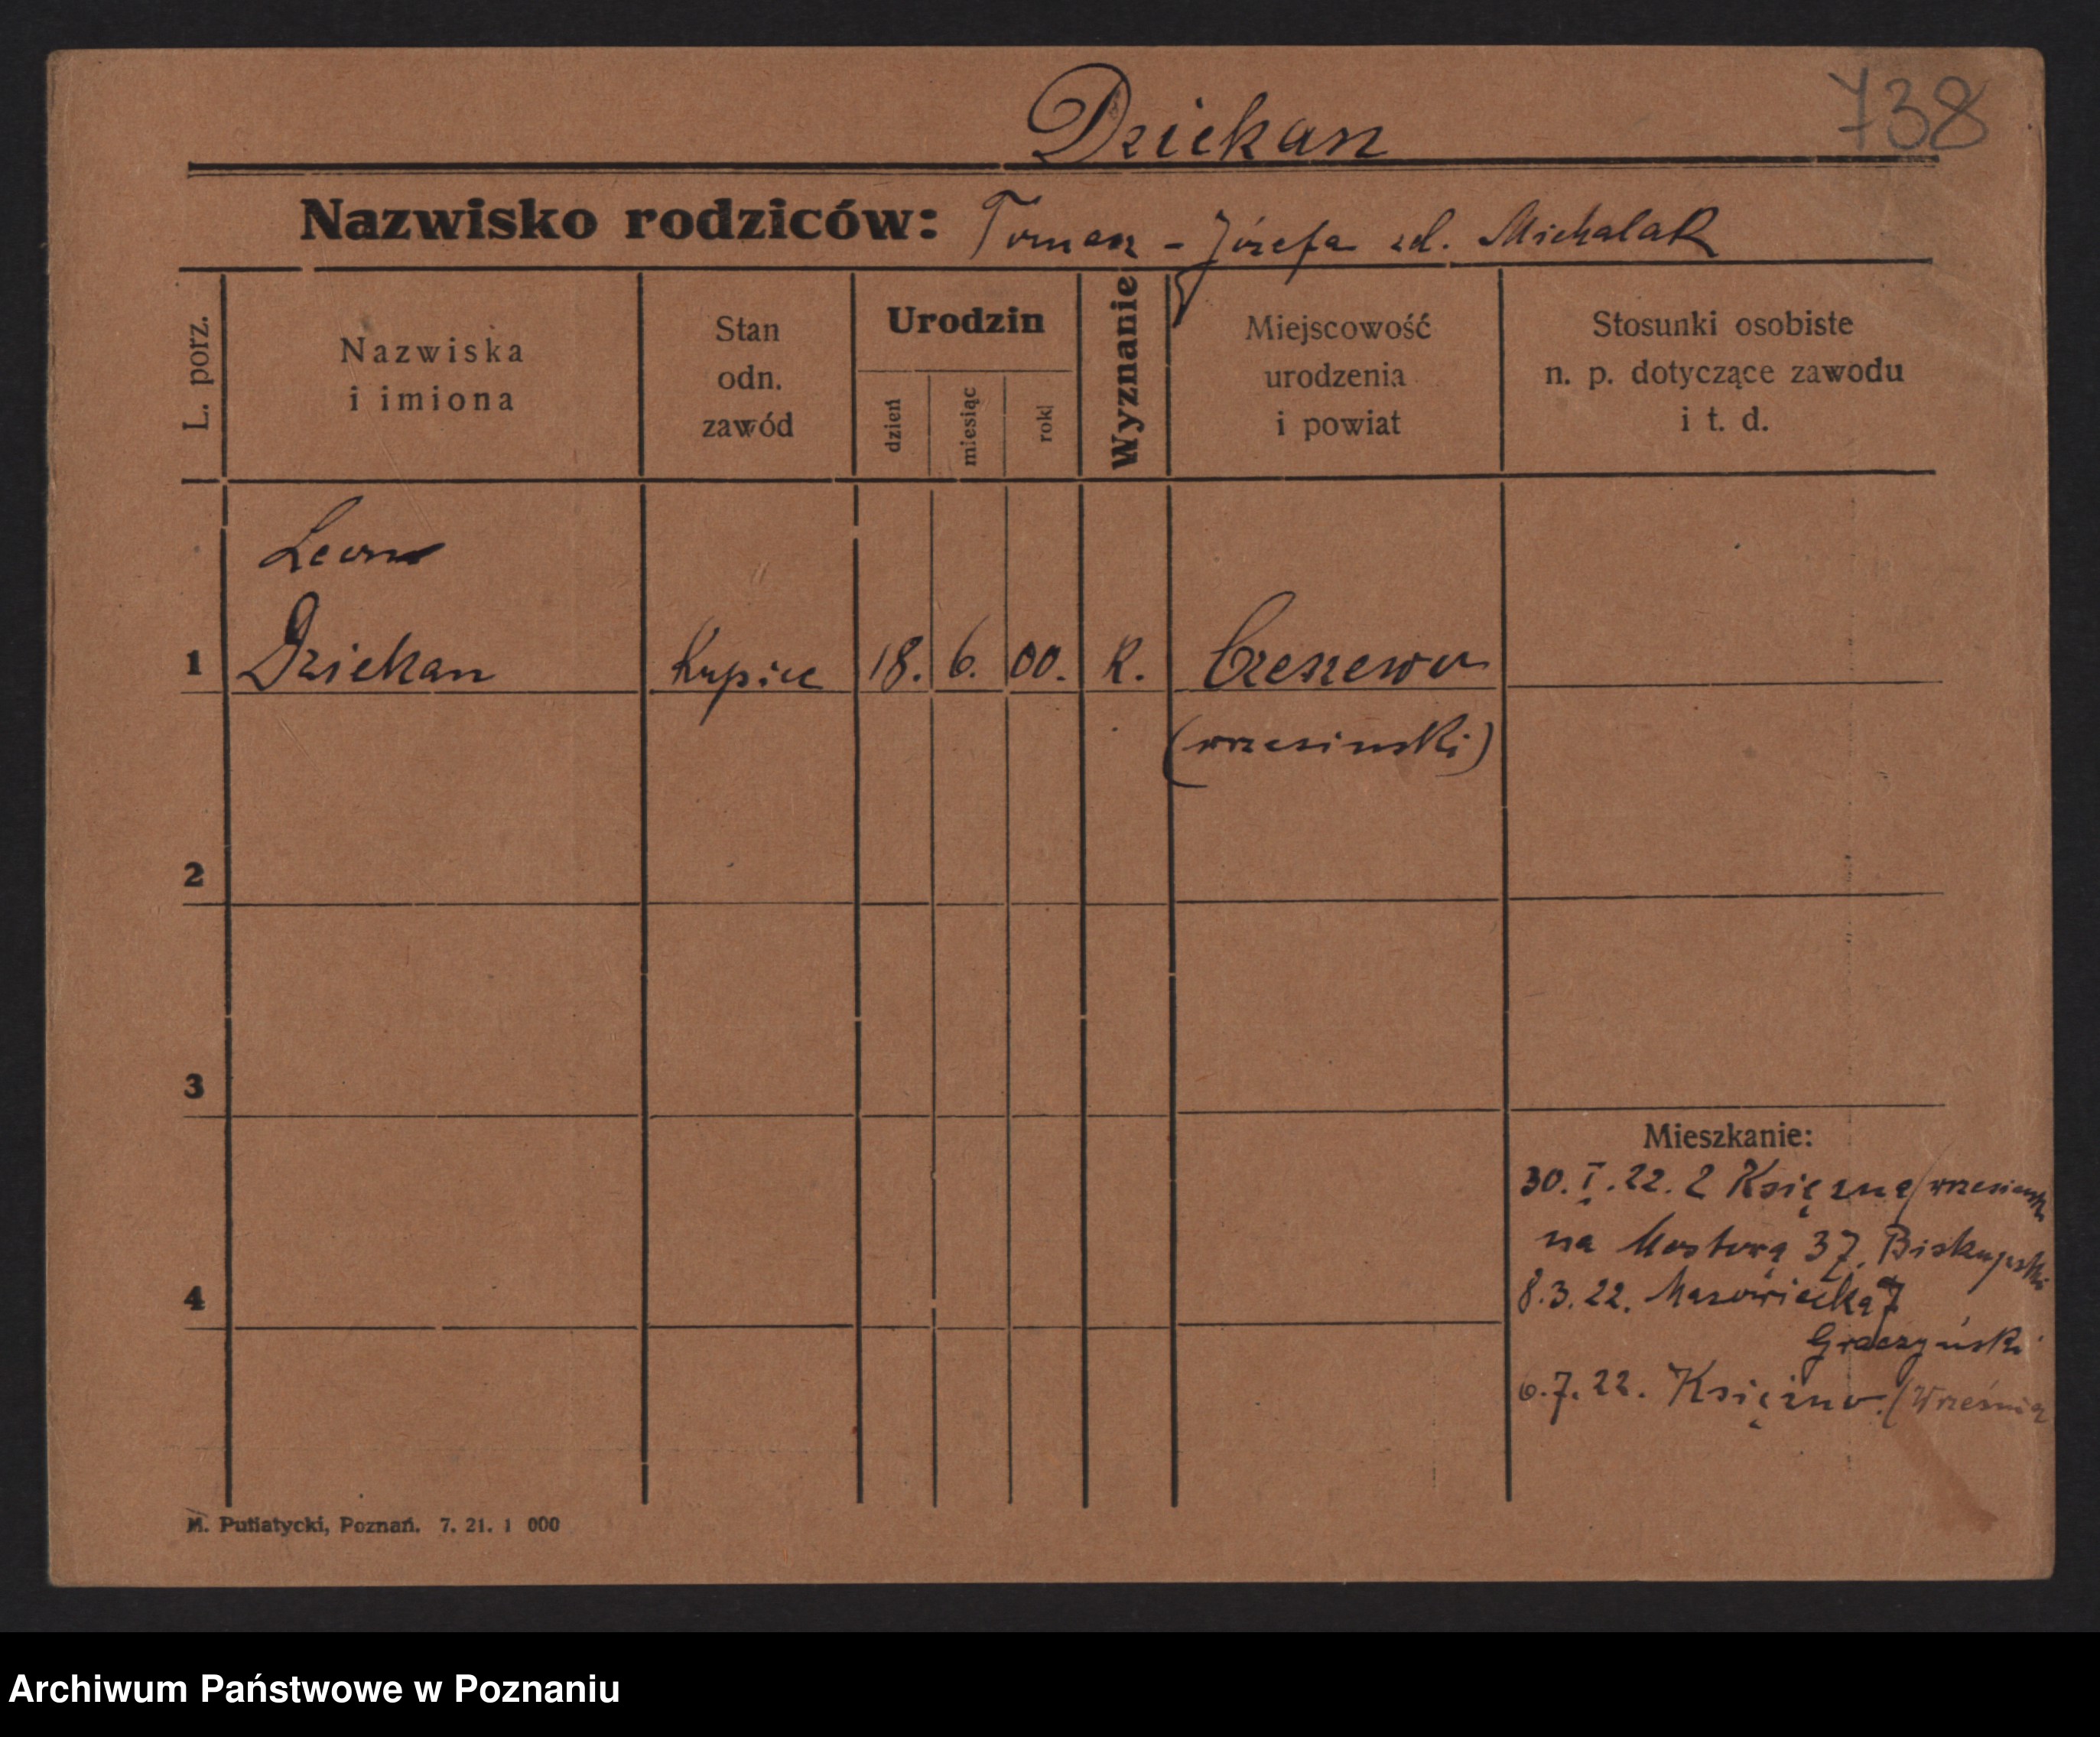 738
Dziekan
Nazwisko rodziców: Tomasz - Józefa zd. Michalak
L. porz.
Nazwiska
i imiona
Stan
odn.
zawód
Urodzin
dzień
miesiąc
rok
Wyznanie
Miejscowość
urodzenia
i powiat
Stosunki osobiste
n. p. dotyczące zawodu
i t. d.
Leon
1 Dziekan kupiec 18. 6. 00. R. Czeszewo
(wrzesinski)
2
3
4
Mieszkanie:
30. I. 22. z Księżna/wrzesinski
na Mostową 37. Biskupski
8.3.22. Mazowiecka 7
Graczyński
6.7.22. Księżno (Września
M. Putiatycki, Poznań. 7. 21. 1 000
Archiwum Państwowe w Poznaniu